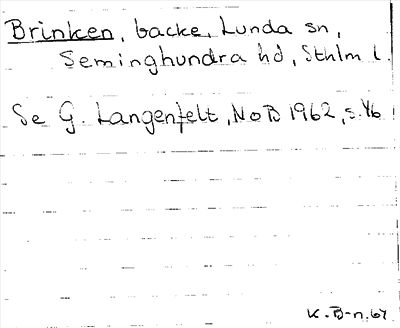 Brinken, backe, Lunda sn,
Seminghundra hd, Sthlm l.
Se G. Langenfelt, NoB 1962, s.
K. B-n, 67